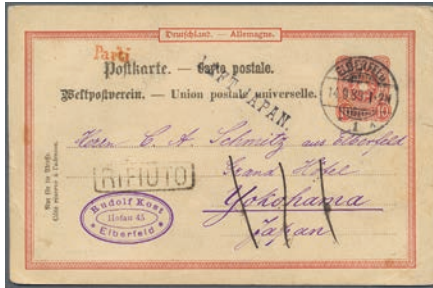 Deutschland. — Allemagne.
Parti
Postkarte. — Carte postale.
Weltpostverein. — Union postale universelle.
JAPAN.
ELBERFELD
14.9.89.1-2N
1
Herrn C. A. Schmitz aus Elberfeld
Grand Hôtel
Yokohama
Japan
RIFIUTO
Rudolf Kost
Hofau 45
Elberfeld
Nur für die Adresse.
Côté réservé à l'adresse.